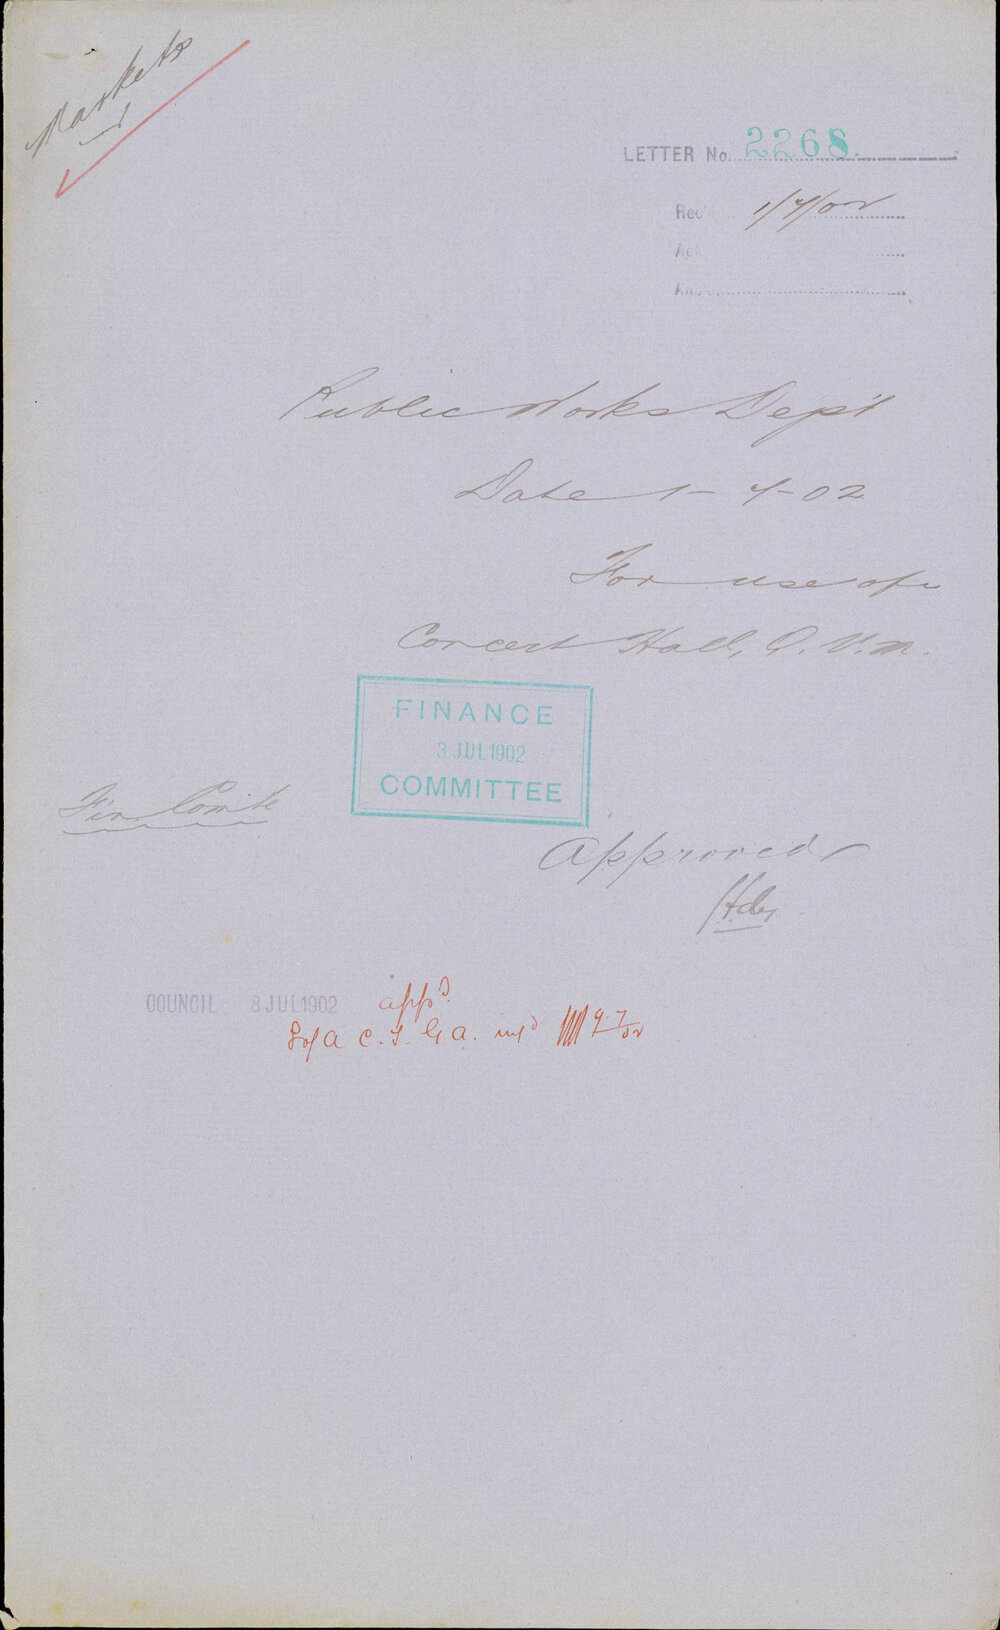 Markets
LETTER No. 2268.
Rec 1/7/02
Public Works Dep't
Date 1-7-02
For use of
Concert Hall, Q. V. M.
FINANCE
3 JUL 1902
COMMITTEE
Fin. Com'te
Approved
COUNCIL 8 JUL 1902 appd.
C. S. G. A. 9.7/02